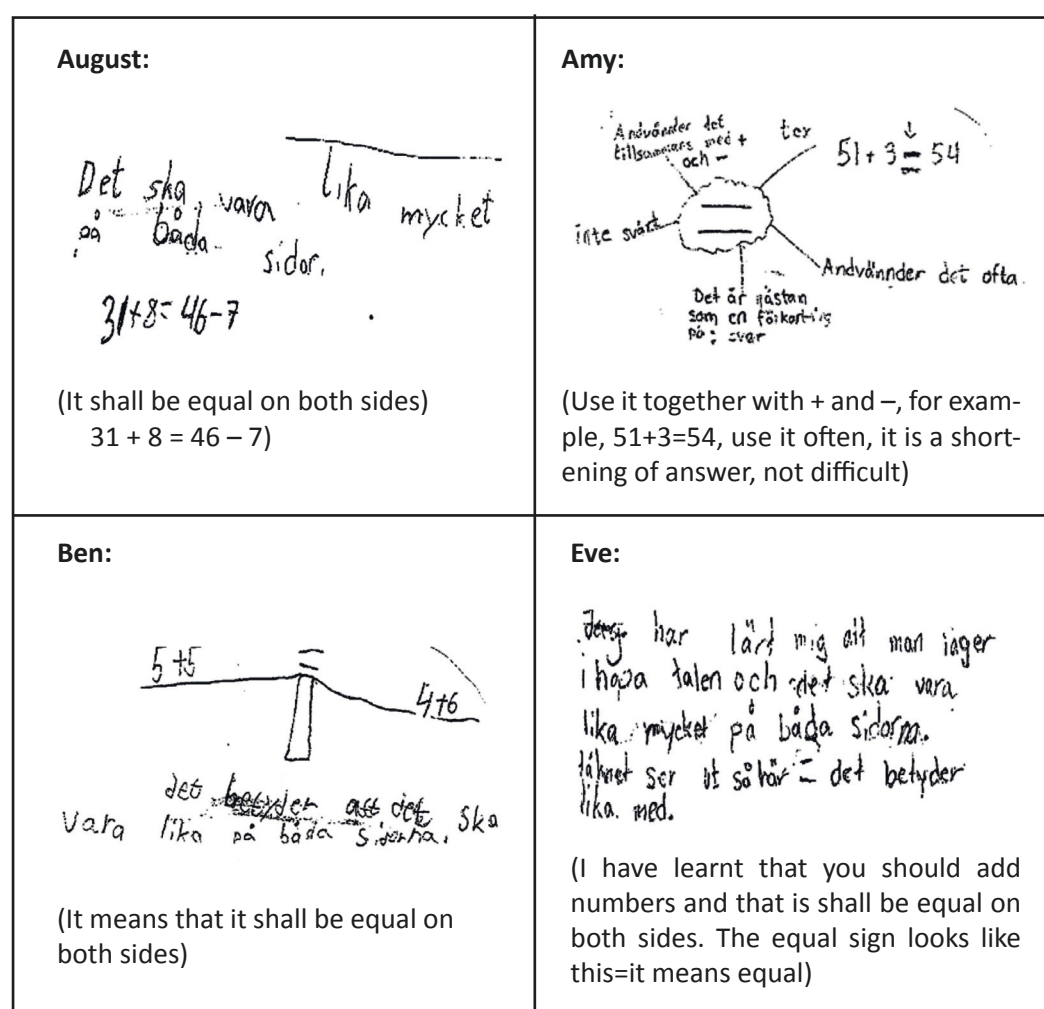 August:
Det ska vara lika mycket
på båda sidor.
31+8=46-7
(It shall be equal on both sides)
31 + 8 = 46 – 7)
Amy:
Andvänder det
tillsammans med +
och -
tex
51 + 3 = 54
inte svårt
Andvännder det ofta.
Det är nästan
som en förkortning
på: svar
(Use it together with + and –, for exam-
ple, 51+3=54, use it often, it is a short-
ening of answer, not difficult)
Ben:
5+5
=
4+6
det betyder att det ska
vara lika på båda sidorna.
(It means that it shall be equal on
both sides)
Eve:
har lärt mig att man läger
i hopa talen och det ska vara
lika mycket på båda sidorna.
ser ut så här = det betyder
lika med.
(I have learnt that you should add
numbers and that is shall be equal on
both sides. The equal sign looks like
this=it means equal)